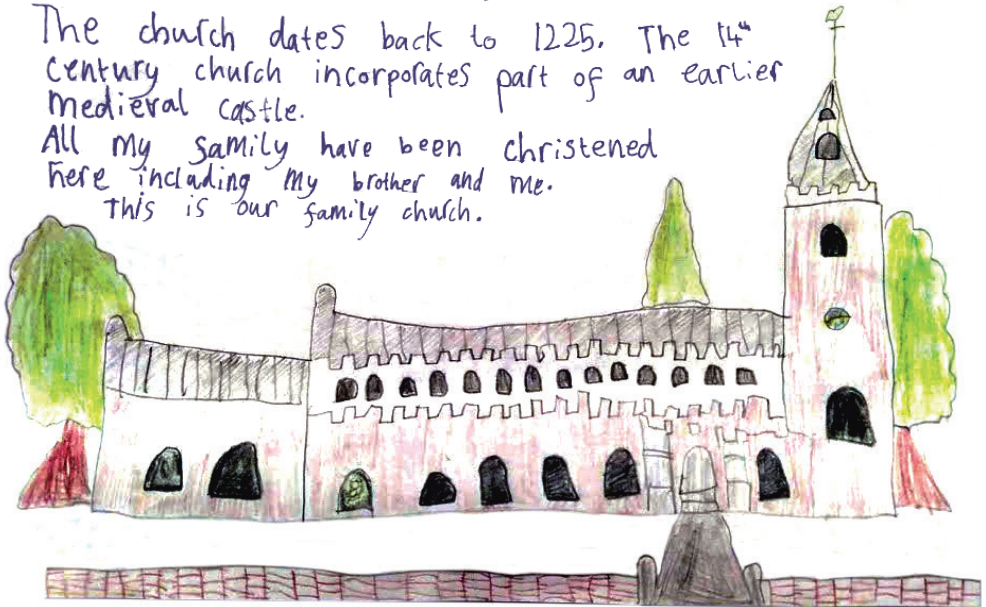 The church dates back to 1225. The 14th
century church incorporates part of an earlier
medieval castle.
All my samily have been christened
here including my brother and me.
This is our family church.